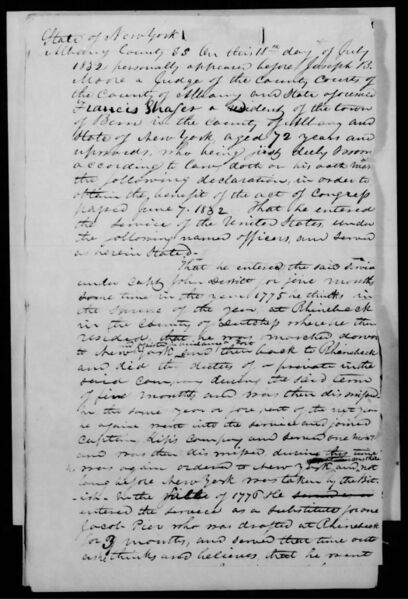 State of New York
Albany County SS On this 18th day of July
1832 personally appeared before Joseph B.
Moore a Judge of the County Courts of
the County of Albany and State aforesaid
Francis Shafer a resident of the town
of Bern in the County of Albany and
State of New York aged 72 years and
upwards, who being first duly sworn
according to Law, doth on his oath make
the following declaration, in order to
obtain the benefit of the act of Congress
passed June 7. 1832 That he entered
the service of the United States under
the following named officers, and served
as herein stated.
That he entered the said service
under Capt John for five months
some time in the year 1775 he thinks in
the Spring of the year at Rhinebeck
in the County of Dutchess where he then
resided that he was marched down
to New York and then back to Rhinebeck
and did the duties of a private in the
said Company during the said term
of five months and was then dismissed
in the same year or fore part of the next year
he again went into the service and joined
Captain Company and served one month
and was then dismissed during this time
was again ordered to New York and not
long before New York was taken by the Brit
ish In the fall of 1776 he
entered the service as a substitute for one
Jacob Pier who was drafted at Rhinebeck
for 3 months, and served that time out
as he thinks and believes, that he went